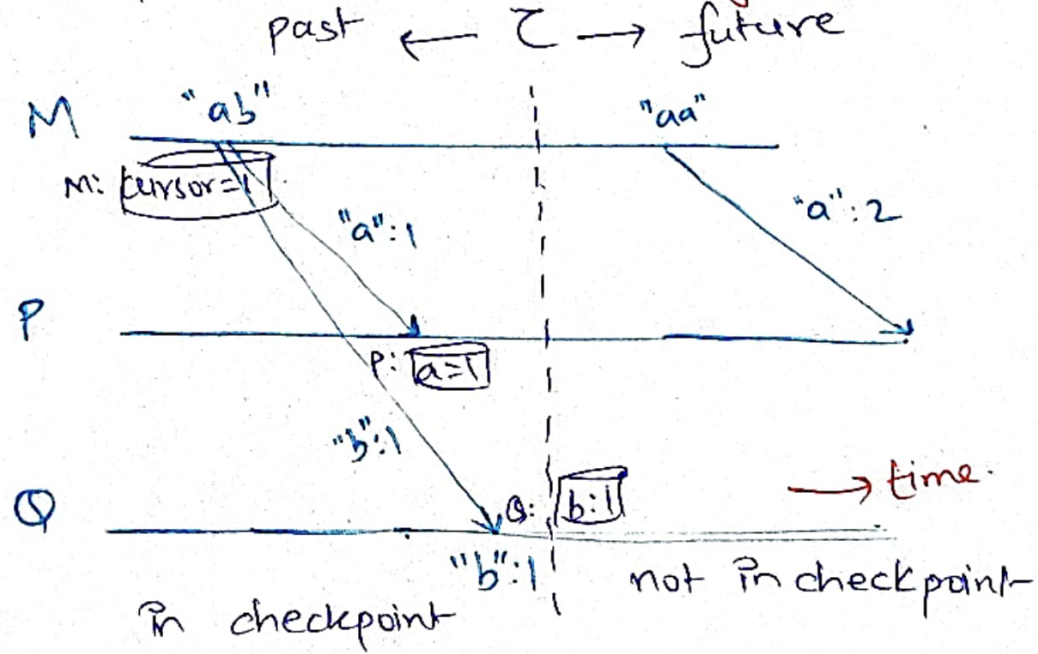 past ← τ → future
M "ab" "aa"
M: cursor=1
"a":1 "a":2
P
P: a=1
"b":1
→ time.
Q Q: b:1
"b":1 not in checkpoint
in checkpoint